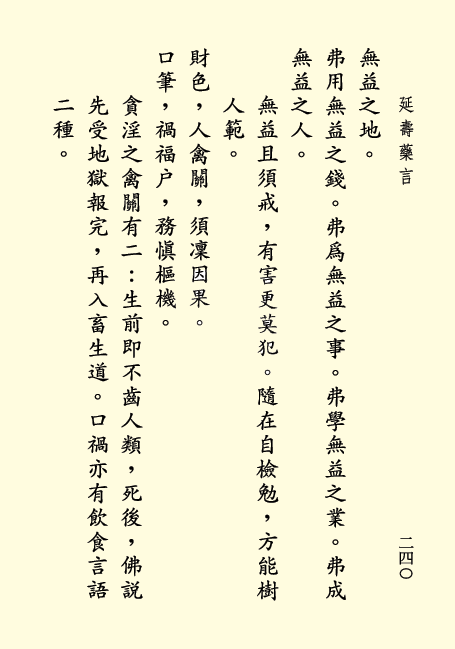 延壽藥言
二四〇
無益之地。
弗用無益之錢。弗爲無益之事。弗學無益之業。弗成
無益之人。
無益且須戒，有害更莫犯。隨在自檢勉，方能樹
人範。
財色，人禽關，須凜因果。
口筆，禍福户，務慎樞機。
貪淫之禽關有二：生前即不齒人類，死後，佛説
先受地獄報完，再入畜生道。口禍亦有飲食言語
二種。